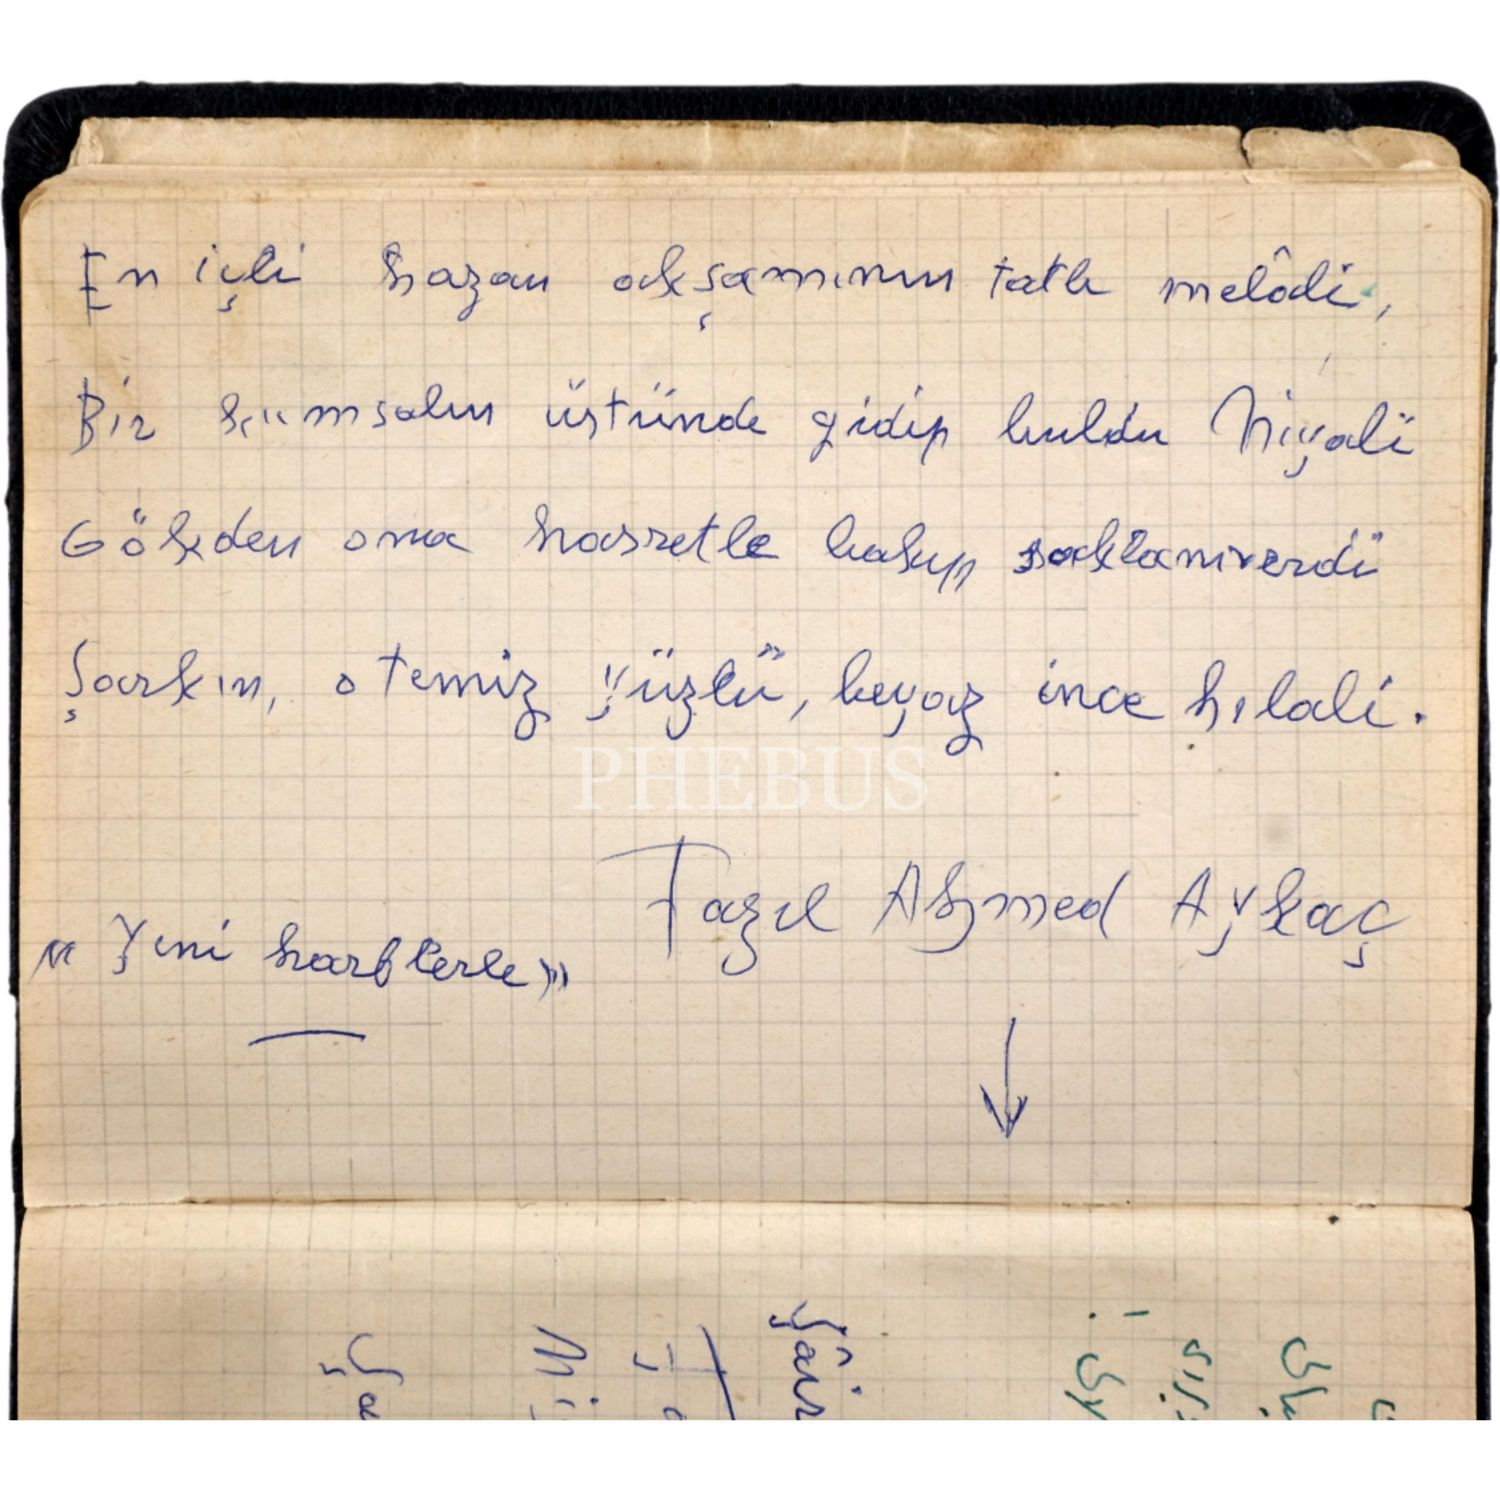 En içli hazan akşamının tatlı melâli,
Bir kumsalın üstünde gidip buldu Niyali
Gökden ona hasretle bakıp saklanıverdi
Şarkın, o temiz yüzlü, beyaz ince hılali.
PHEBUS
Fazıl Ahmed Aykaç
« Yeni harflerle »
Şâir